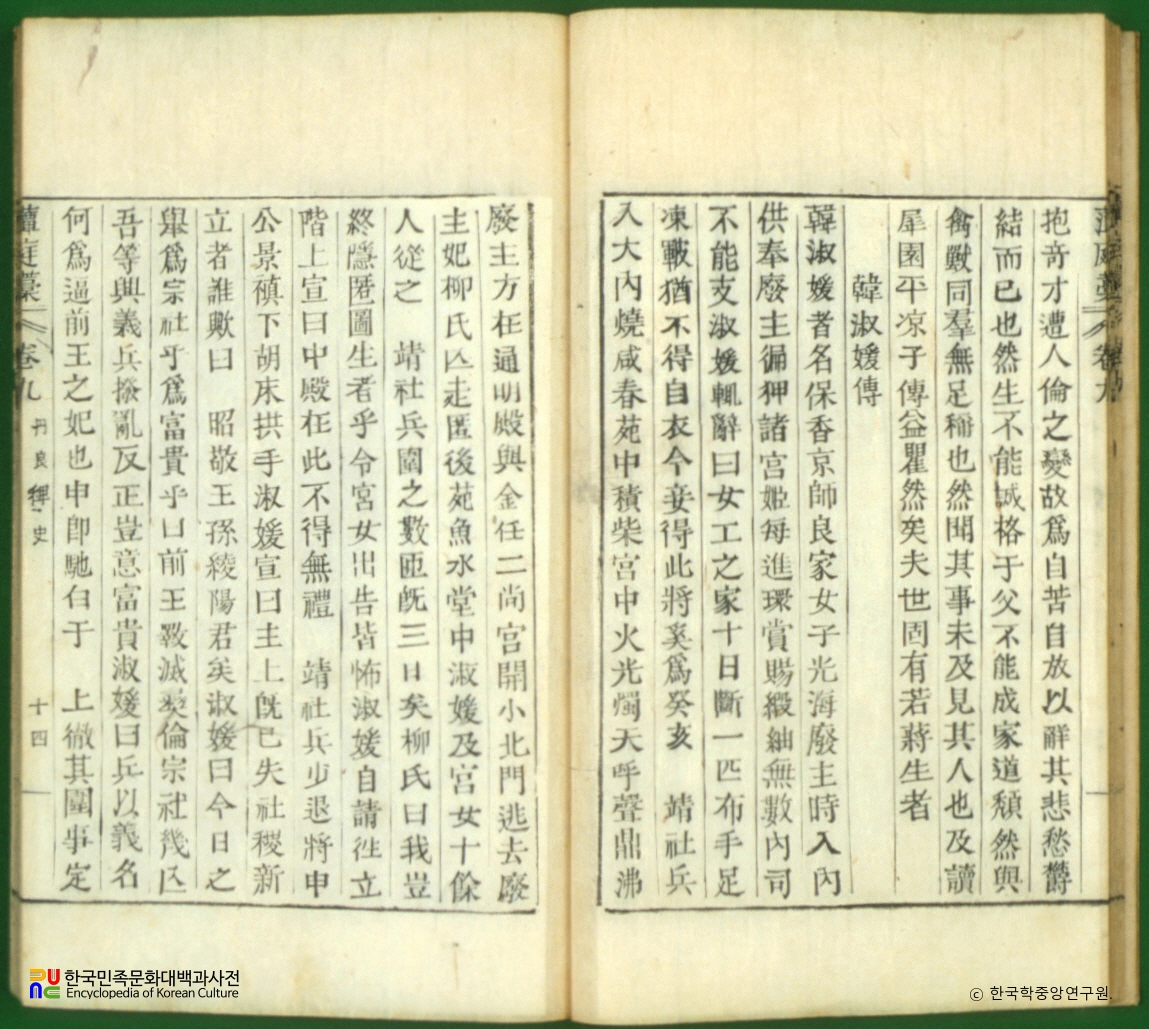 抱奇才遭人倫之變故爲自苦自放以鮮其悲愁欝
結而已也然生不能誠格于父不能成家道頽然與
禽獸同羣無足稱也然聞其事未及見其人也及讀
犀園平凉子傳益瞿然矣夫世固有若蔣生者
韓淑媛傳
韓淑媛者名保香京師良家女子光海廢主時入內
供奉廢主徧狎諸宮姬每進環賞賜緞紬無數內司
不能支淑媛輒辭曰女工之家十日斷一匹布手足
凍皸猶不得自衣今妾得此將奚爲癸亥 靖社兵
入大內燒咸春苑中積柴宮中火光燭天呼聲鼎沸
廢主方在通明殿與金任二尚宮開小北門逃去廢
主妃柳氏亾走匿後苑魚水堂中淑媛及宮女十餘
人從之 靖社兵圍之數匝旣三日矣柳氏曰我豈
終隱匿圖生者乎令宮女出告皆怖淑媛自請徃立
階上宣曰中殿在此不得無禮 靖社兵少退將申
公景禛下胡床拱手淑媛宣曰主上旣已失社稷新
立者誰歟曰 昭敬王孫綾陽君矣淑媛曰今日之
擧爲宗社乎爲富貴乎曰前王斁滅彛倫宗社幾亾
吾等興義兵撥亂反正豈意富貴淑媛曰兵以義名
何爲逼前王之妃也申卽馳白于 上徹其圍事定
藫庭藁 卷九 丹良稗史 十四
한국민족문화대백과사전
Encyclopedia of Korean Culture
ⓒ 한국학중앙연구원.